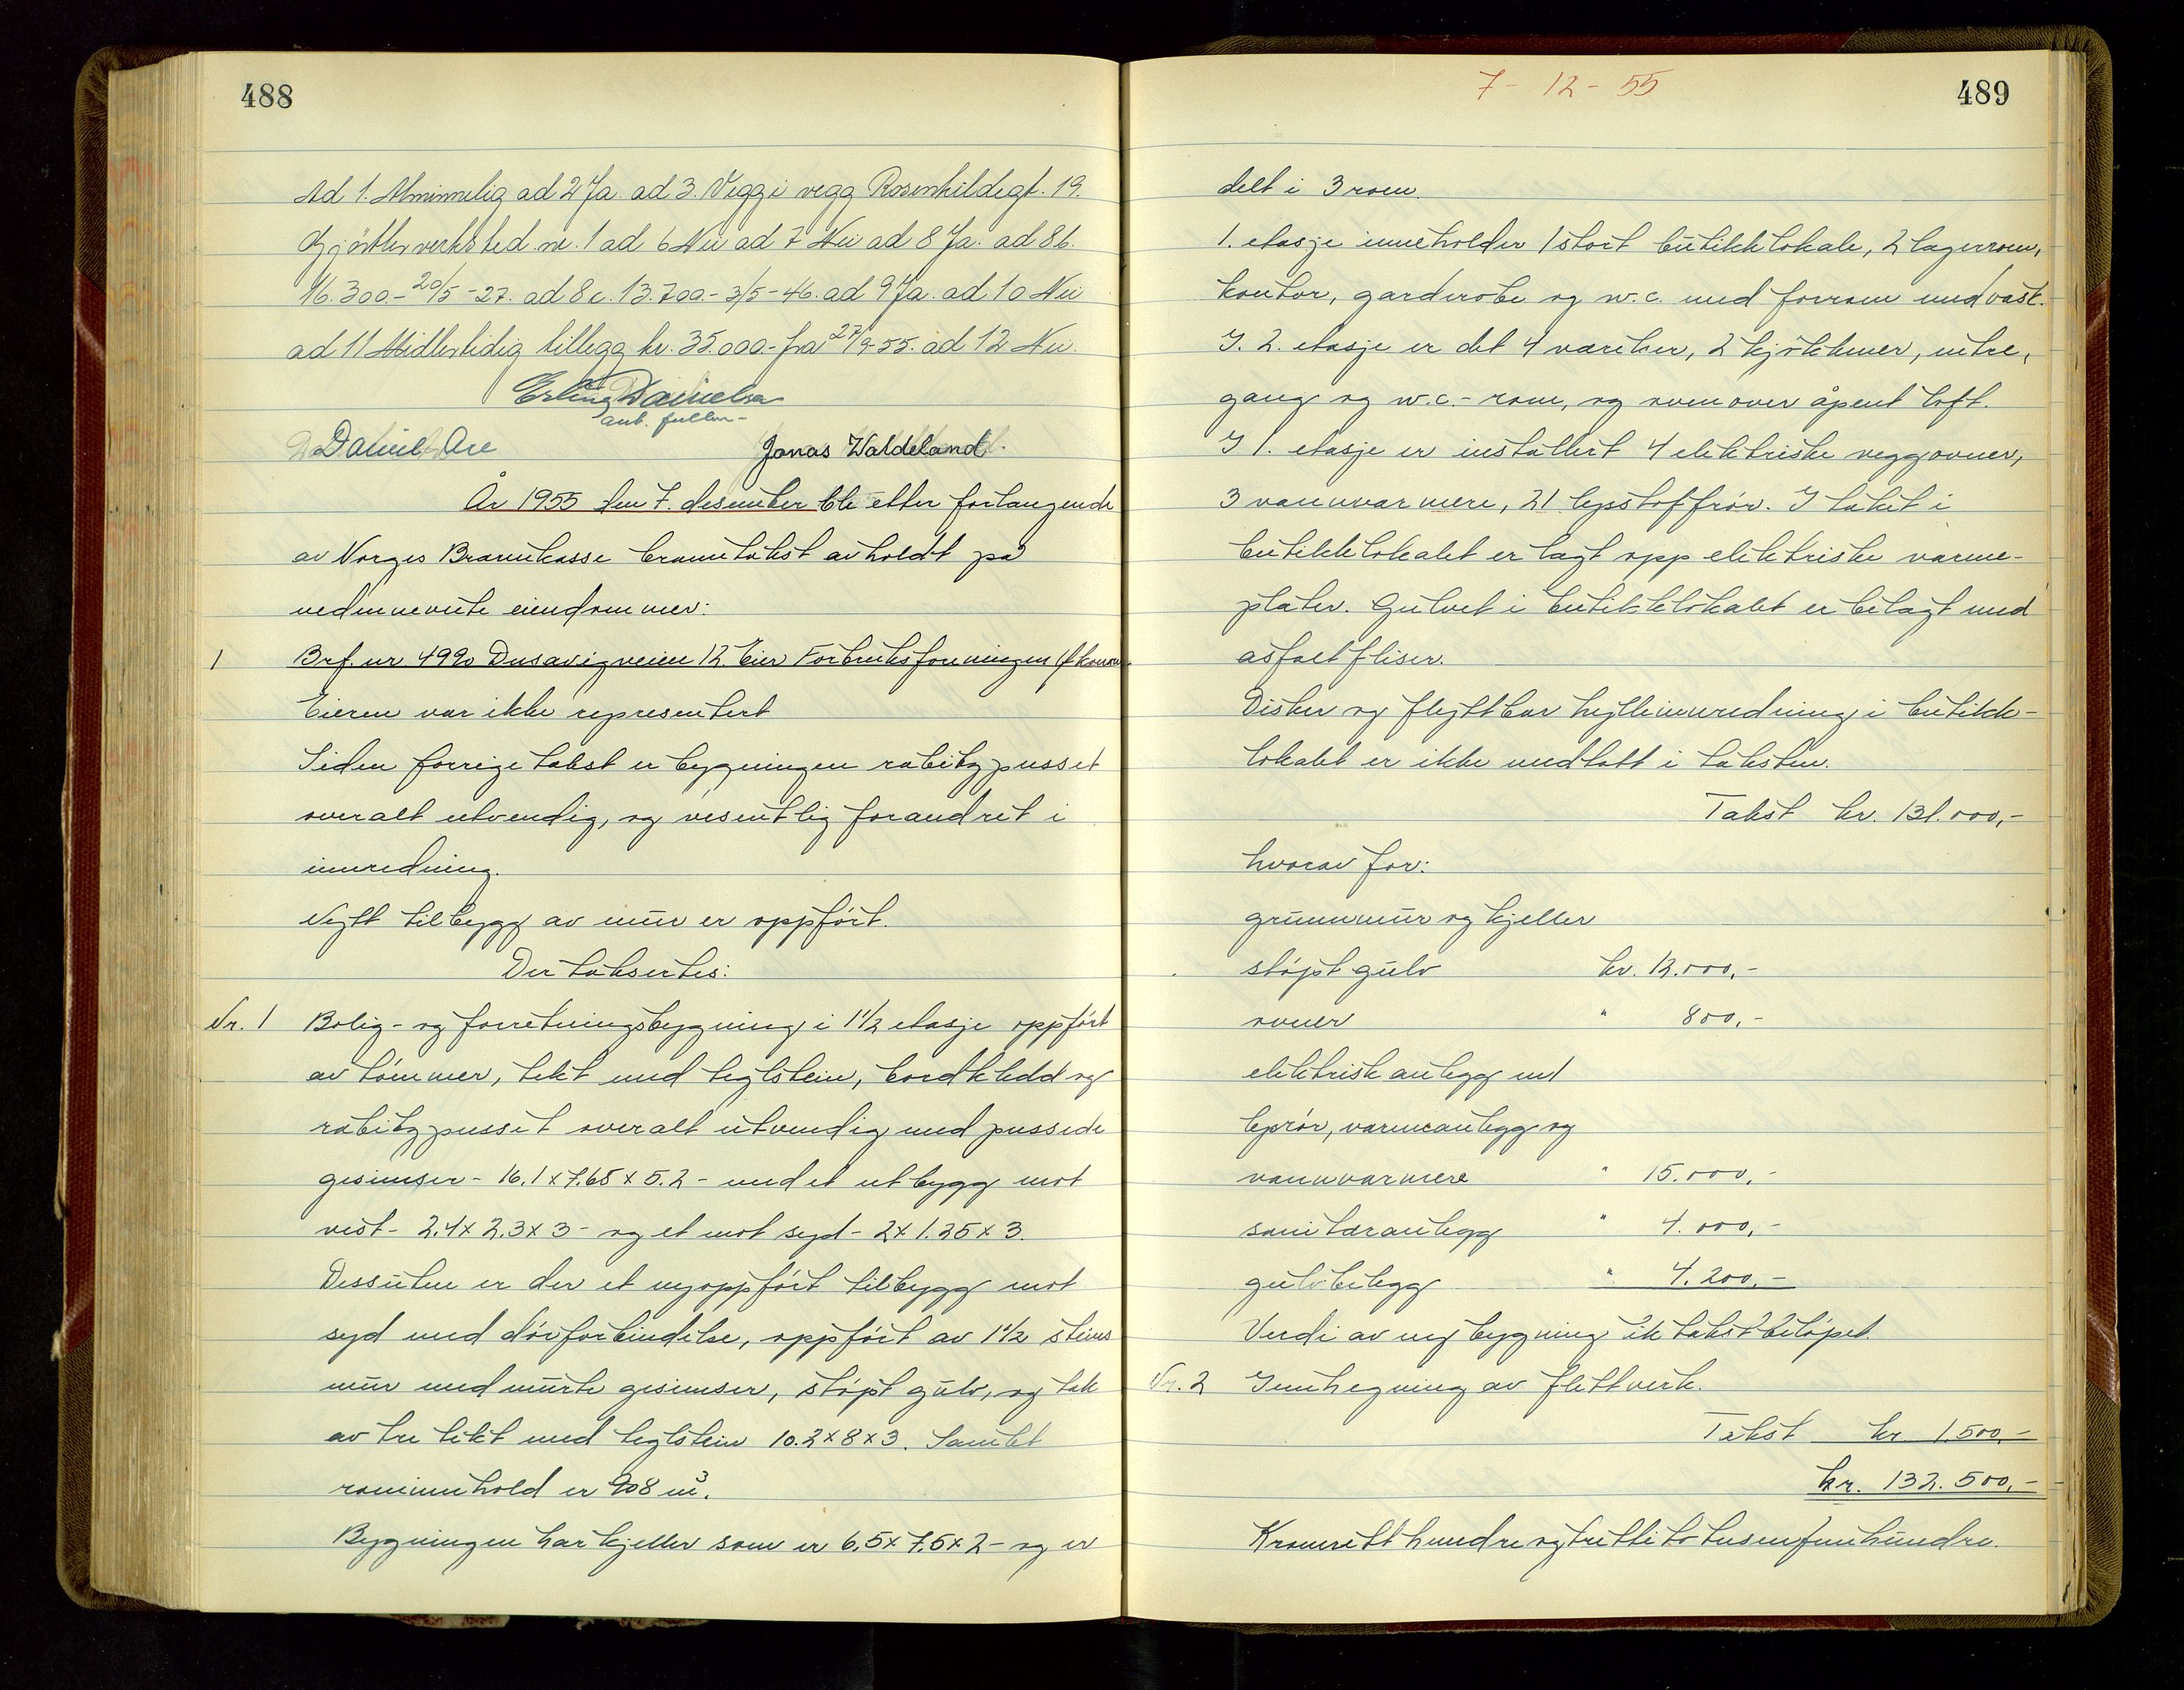 488
Ad 1. Alminnelig ad 2 Ja. ad 3. Vegg i vegg Rosenkildegt. 19.
Gjörtlerverksted. nr. 1 ad 6 Nei ad 7 Nei ad 8 Ja. ad 8b.
16.300.- 20/5 - 27. ad 8c. 13.700.- 3/5 - 46. ad 9 Ja. ad 10 Nei
ad 11 Midlertidig tillegg kr. 35.000.- fra 27/9-55. ad 12 Nei.
Erling Danielsen
aut. fullm-
Daniel Are
Jonas Waldeland.
År 1955 den 7. desember ble etter forlangende
av Norges Brannkasse branntakst avholdt på
nedennevnte eiendommer:
1 Brf. nr 4990 Dusavigveien 12. Eier Forbruksforeningen Økonom
Eieren var ikke representert
Siden forrige takst er bygningen rabitzpusset
overalt utvendig, og vesentlig forandret i
innredning.
Nytt tilbygg av mur er oppført.
Der taksertes:
Nr. 1 Bolig- og forretningsbygning i 1 1/2 etasje oppført
av tømmer, tekt med teglstein, bordkledd og
rabitzpusset overalt utvendig med pussede
gesimser - 16.1 x 7.65 x 5.2 - med et utbygg mot
vest - 2.4 x 2.3 x 3 - og et mot syd - 2 x 1.25 x 3.
Dessuten er der et nyoppført tilbygg mot
syd med dørforbindelse, oppført av 1 1/2 steins
mur med murte gesimser, støpt gulv, og tak
av tre tekt med teglstein 10.2 x 8 x 3. Samlet
rominnhold er 908 m3.
Bygningen har kjeller som er 6.5 x 7.5 x 2 - og er
7 - 12 - 55
489
delt i 3 rom.
1. etasje inneholder 1 stort butikklokale, 2 lagerrom,
kontor, garderobe og w.c. med forrom med vask.
I 2. etasje er det 4 værelser, 2 kjøkkener, entre,
gang og w.c.- rom, og ovenover åpent loft.
I 1. etasje er installert 4 elektriske veggovner,
3 vannvarmere, 21 lysstoffrør. I taket i
butikklokalet er lagt opp elektriske varme-
plater. Gulvet i butikklokalet er belagt med
asfaltfliser.
Disker og flyttbar hylleinnredning i butikk-
lokalet er ikke medtatt i taksten.
Takst kr. 131.000,-
hvorav for:
grunnmur og kjeller
støpt gulv kr. 12.000,-
ovner " 800,-
elektrisk anlegg med
lysrør, varmeanlegg og
vannvarmere " 15.000,-
sanitæranlegg " 4.000,-
gulvbelegg " 4.200,-
Verdi av ny bygning lik takstbeløpet.
Nr. 2 Innhegning av flettverk.
Takst kr. 1.500,-
kr. 132.500,-
Kroner ett hundre og tretti to tusen fem hundre.